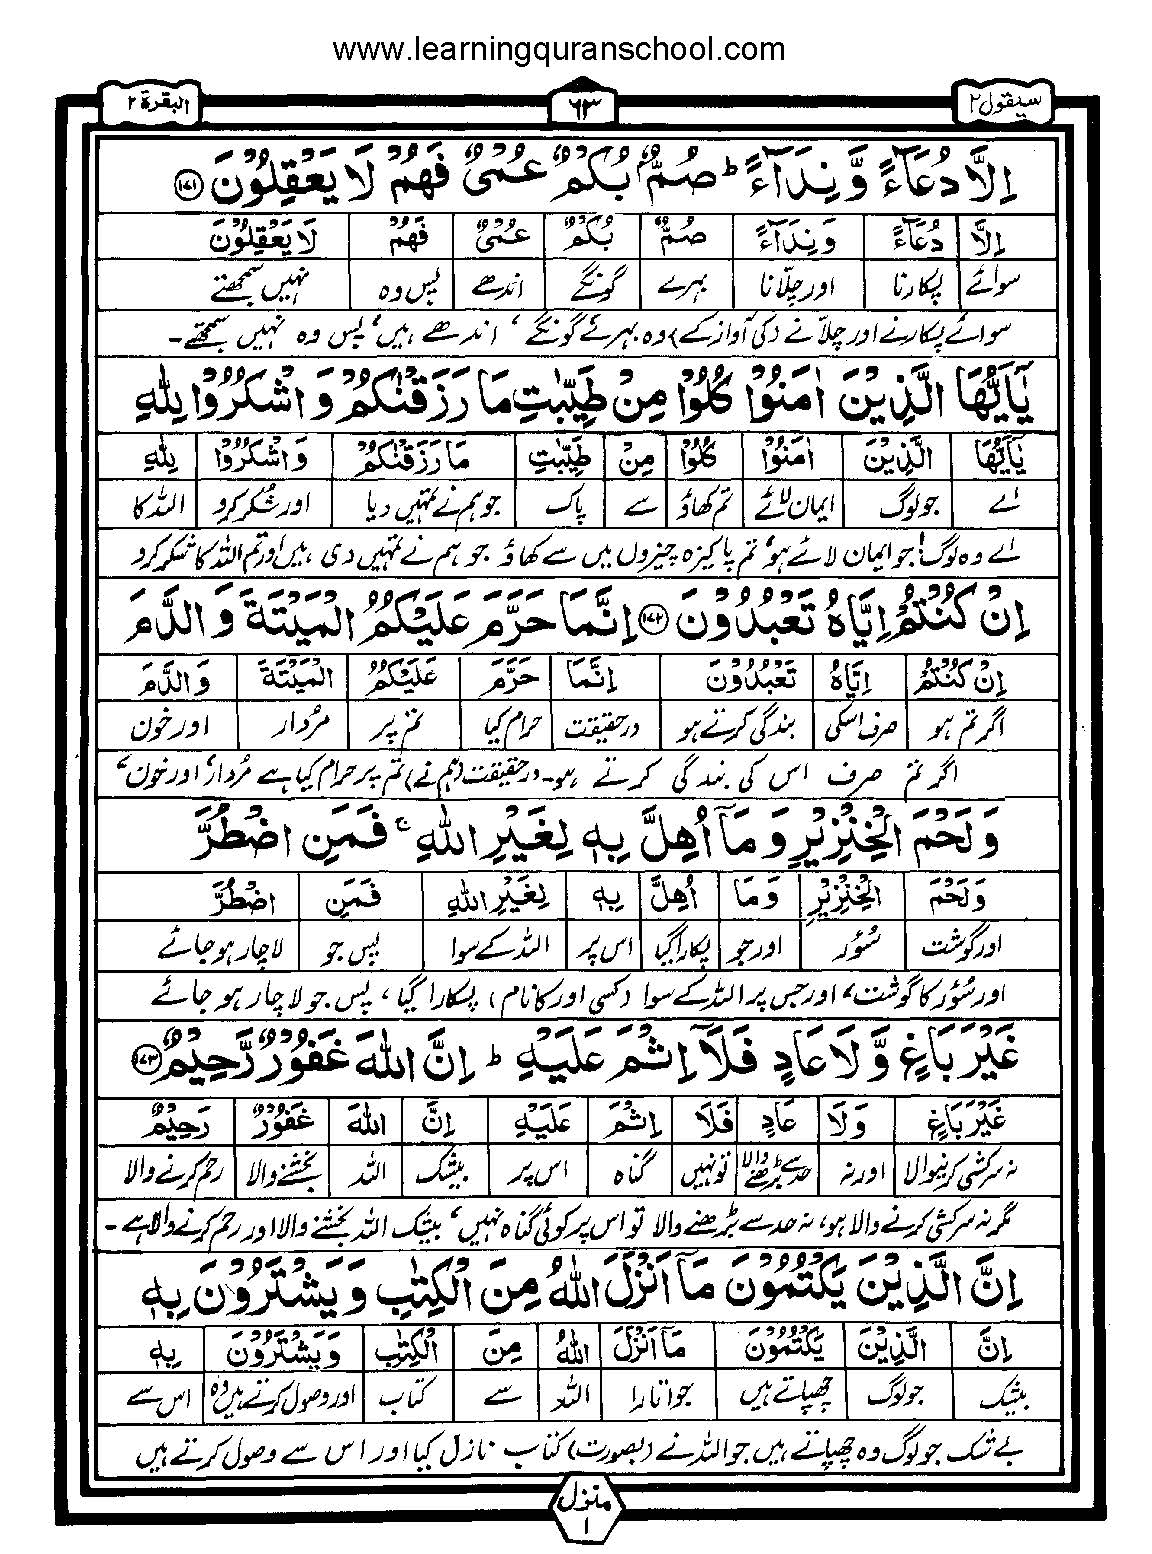 www.learningquranschool.com
سیقول ٢ ٦٣ البقرة ٢
اِلَّا دُعَآءً وَّنِدَآءً ؕ صُمٌّۢ بُكْمٌ عُمْیٌ فَهُمْ لَا یَعْقِلُوْنَ ﴿۱۷۱﴾
اِلَّا دُعَآءً وَنِدَآءً صُمٌّ بُكْمٌ عُمْیٌ فَهُمْ لَا یَعْقِلُوْنَ
سوائے پکارنا اور چلّانا بہرے گونگے اندھے پس وہ نہیں سمجھتے
سوائے پکارنے اور چلّانے (کی آواز کے) وہ بہرے گونگے ، اندھے ہیں، پس وہ نہیں سمجھتے۔
یٰۤاَیُّهَا الَّذِیْنَ اٰمَنُوْا كُلُوْا مِنْ طَیِّبٰتِ مَا رَزَقْنٰكُمْ وَاشْكُرُوْا لِلّٰهِ
یٰۤاَیُّهَا الَّذِیْنَ اٰمَنُوْا كُلُوْا مِنْ طَیِّبٰتِ مَا رَزَقْنٰكُمْ وَاشْكُرُوْا لِلّٰهِ
اے جو لوگ ایمان لائے تم کھاؤ سے پاک جو ہم نے تمہیں دیا اور شکر کرو اللہ کا
اے وہ لوگ! جو ایمان لائے ہو، تم پاکیزہ چیزوں میں سے کھاؤ جو ہم نے تمہیں دی ہیں اور تم اللہ کا شکر کرو
اِنْ كُنْتُمْ اِیَّاهُ تَعْبُدُوْنَ ﴿۱۷۲﴾ اِنَّمَا حَرَّمَ عَلَیْكُمُ الْمَیْتَةَ وَالدَّمَ
اِنْ كُنْتُمْ اِیَّاهُ تَعْبُدُوْنَ اِنَّمَا حَرَّمَ عَلَیْكُمُ الْمَیْتَةَ وَالدَّمَ
اگر تم ہو صرف اسکی بندگی کرتے ہو درحقیقت حرام کیا تم پر مُردار اور خون
اگر تم صرف اس کی بندگی کرتے ہو۔ درحقیقت (ہم نے) تم پر حرام کیا ہے مُردار، اور خون،
وَلَحْمَ الْخِنْزِیْرِ وَمَاۤ اُهِلَّ بِهٖ لِغَیْرِ اللّٰهِ ۚ فَمَنِ اضْطُرَّ
وَلَحْمَ الْخِنْزِیْرِ وَمَا اُهِلَّ بِهٖ لِغَیْرِ اللّٰهِ فَمَنِ اضْطُرَّ
اور گوشت سُؤر اور جو پکارا گیا اس پر اللہ کے سوا پس جو لاچار ہو جائے
اور سُؤر کا گوشت، اور جس پر اللہ کے سوا (کسی اور کا نام) پکارا گیا، پس جو لاچار ہو جائے
غَیْرَ بَاغٍ وَّلَا عَادٍ فَلَاۤ اِثْمَ عَلَیْهِ ؕ اِنَّ اللّٰهَ غَفُوْرٌ رَّحِیْمٌ ﴿۱۷۳﴾
غَیْرَ بَاغٍ وَلَا عَادٍ فَلَا اِثْمَ عَلَیْهِ اِنَّ اللّٰهَ غَفُوْرٌ رَحِیْمٌ
نہ سرکشی کرنیوالا اور نہ حد سے بڑھنے والا تو نہیں گناہ اس پر بیشک اللہ بخشنے والا رحم کرنے والا
مگر نہ سرکشی کرنے والا ہو، نہ حد سے بڑھنے والا تو اس پر کوئی گناہ نہیں، بیشک اللہ بخشنے والا اور رحم کرنے والا ہے۔
اِنَّ الَّذِیْنَ یَكْتُمُوْنَ مَاۤ اَنْزَلَ اللّٰهُ مِنَ الْكِتٰبِ وَیَشْتَرُوْنَ بِهٖ
اِنَّ الَّذِیْنَ یَكْتُمُوْنَ مَاۤ اَنْزَلَ اللّٰهُ مِنَ الْكِتٰبِ وَیَشْتَرُوْنَ بِهٖ
بیشک جو لوگ چھپاتے ہیں جو اتارا اللہ سے کتاب اور وصول کرتے ہیں وہ اس سے
بے شک جو لوگ وہ چھپاتے ہیں جو اللہ نے (بصورت) کتاب نازل کیا اور اس سے وصول کرتے ہیں
منزل ١